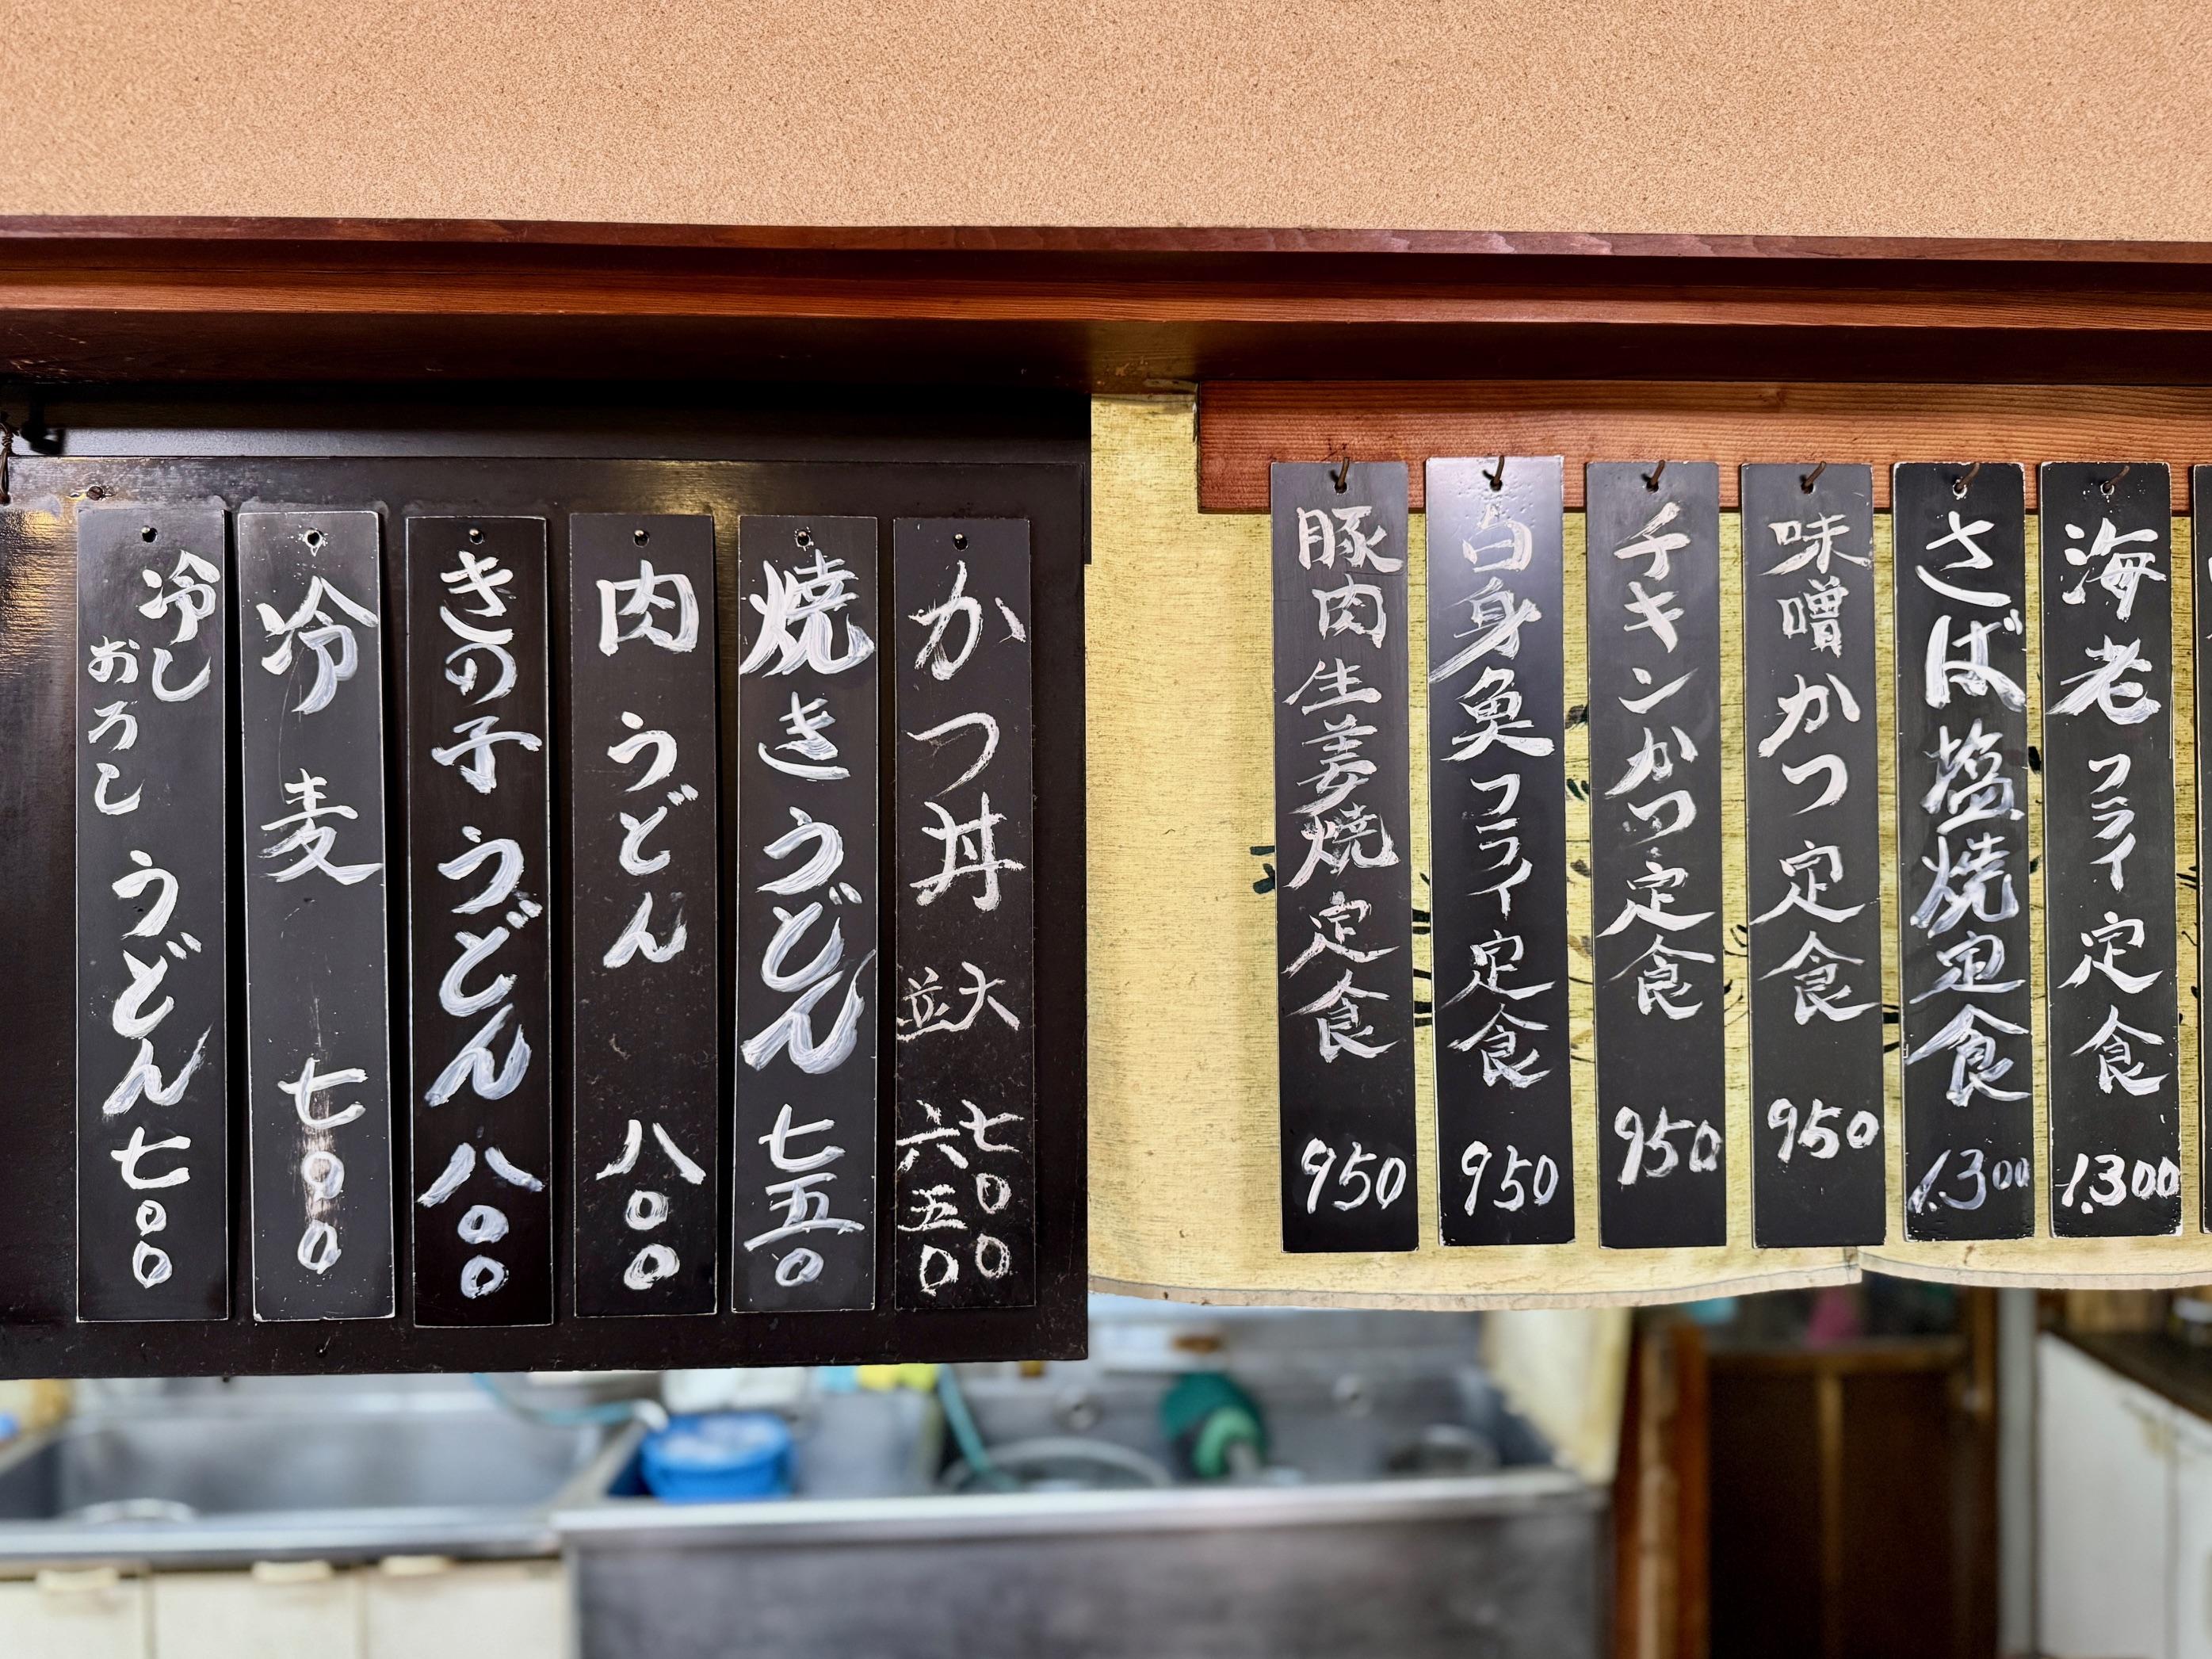 海老フライ定食 1.300
さば塩焼定食 1.300
味噌かつ定食 950
チキンかつ定食 950
白身魚フライ定食 950
豚肉生姜焼定食 950
かつ丼
大 七〇〇
並 六五〇
焼きうどん 七五〇
肉うどん 八〇〇
きの子うどん 八〇〇
冷麦 七〇〇
冷し
おろし
うどん 七〇〇